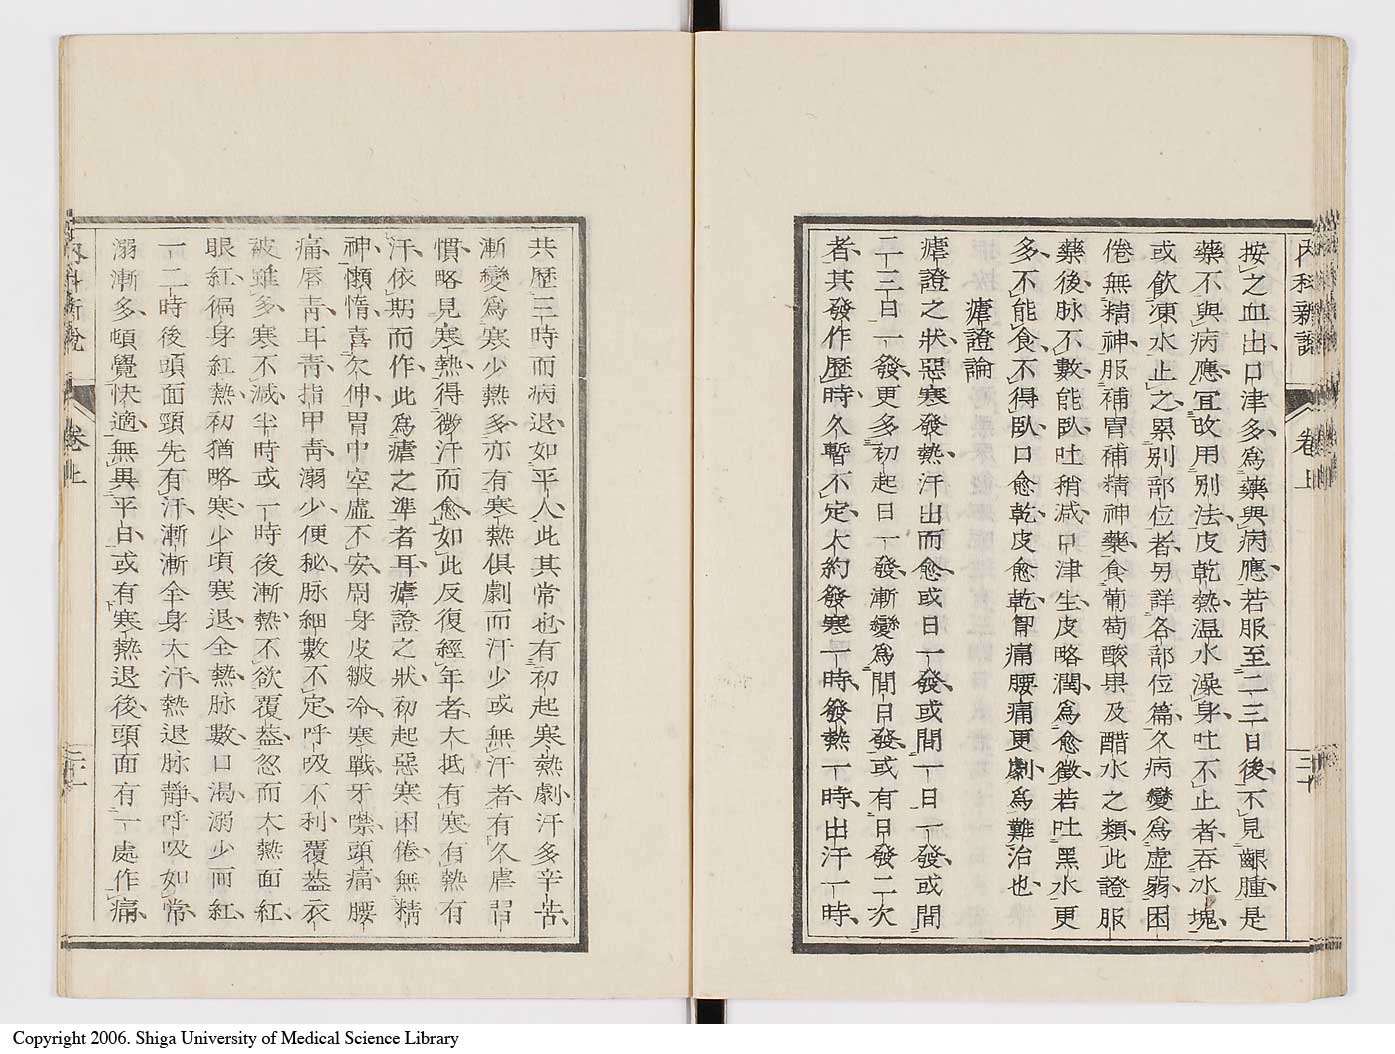 內科新說 卷上 三十
按之血出口津多為藥與病應若服至二三日後不見齦腫是
藥不與病應宜改用別法皮乾熱温水澡身吐不止者吞冰塊
或飲凍水止之累別部位者另詳各部位篇久病變為虛弱困
倦無精神服補胃補精神藥食葡萄酸果及醋水之類此證服
藥後脉不數能臥吐稍減口津生皮略潤為愈徵若吐黑水更
多不能食不得臥口愈乾皮愈乾胷痛腰痛更劇為難治也
瘧證論
瘧證之狀惡寒發熱汗出而愈或日一發或間一日一發或間
二三日一發更多初起日一發漸變為間日發或有日發二次
者其發作歷時久暫不定大約發寒一時發熱一時出汗一時
共歷三時而病退如平人此其常也有初起寒熱劇汗多辛苦
漸變為寒少熱多亦有寒熱俱劇而汗少或無汗者有久虐習
慣略見寒熱得微汗而愈如此反復經年者大抵有寒有熱有
汗依期而作此為瘧之準者耳瘧證之狀初起惡寒困倦無精
神懶惰喜欠伸胃中空虛不安周身皮皺冷寒戰牙噤頭痛腰
痛唇靑耳靑指甲靑溺少便秘脉細數不定呼吸不利覆葢衣
被雖多寒不減半時或一時後漸熱不欲覆葢忽而大熱面紅
眼紅徧身紅熱初猶略寒少頃寒退全熱脉數口渴溺少而紅
一二時後頭面頸先有汗漸漸全身大汗熱退脉靜呼吸如常
溺漸多頓覺快適無異平日或有寒熱退後頭面有一處作痛
內科新說 卷上